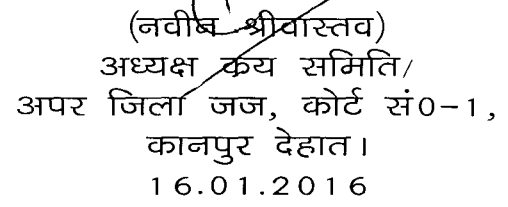 (नवीन श्रीवास्तव)
अध्यक्ष क्रय समिति/
अपर जिला जज, कोर्ट सं0-1,
कानपुर देहात।
16.01.2016